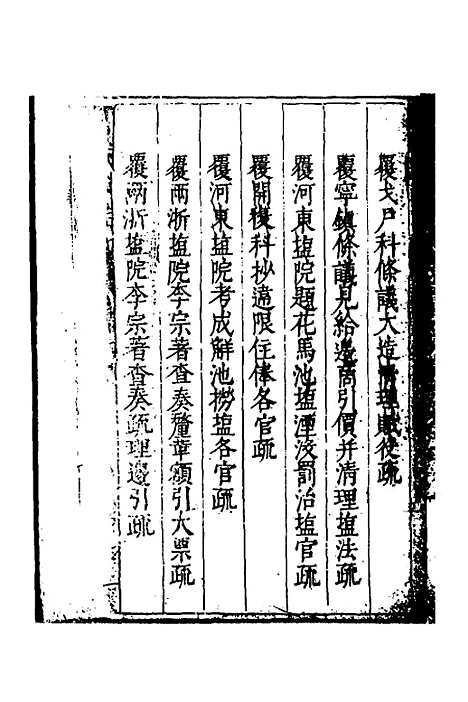 覆戈尸科條議大造清理賦役疏
覆寧鎮條議見給邊商引價并清理塩法疏
覆河東塩院題花馬池塩湮沒罰治塩官疏
覆開復科抄違限住俸各官疏
覆河東塩院考成解池撈塩各官疏
覆兩浙塩院李宗著查奏釐革額引大票疏
覆兩浙塩院李宗著查奏疏理邊引疏